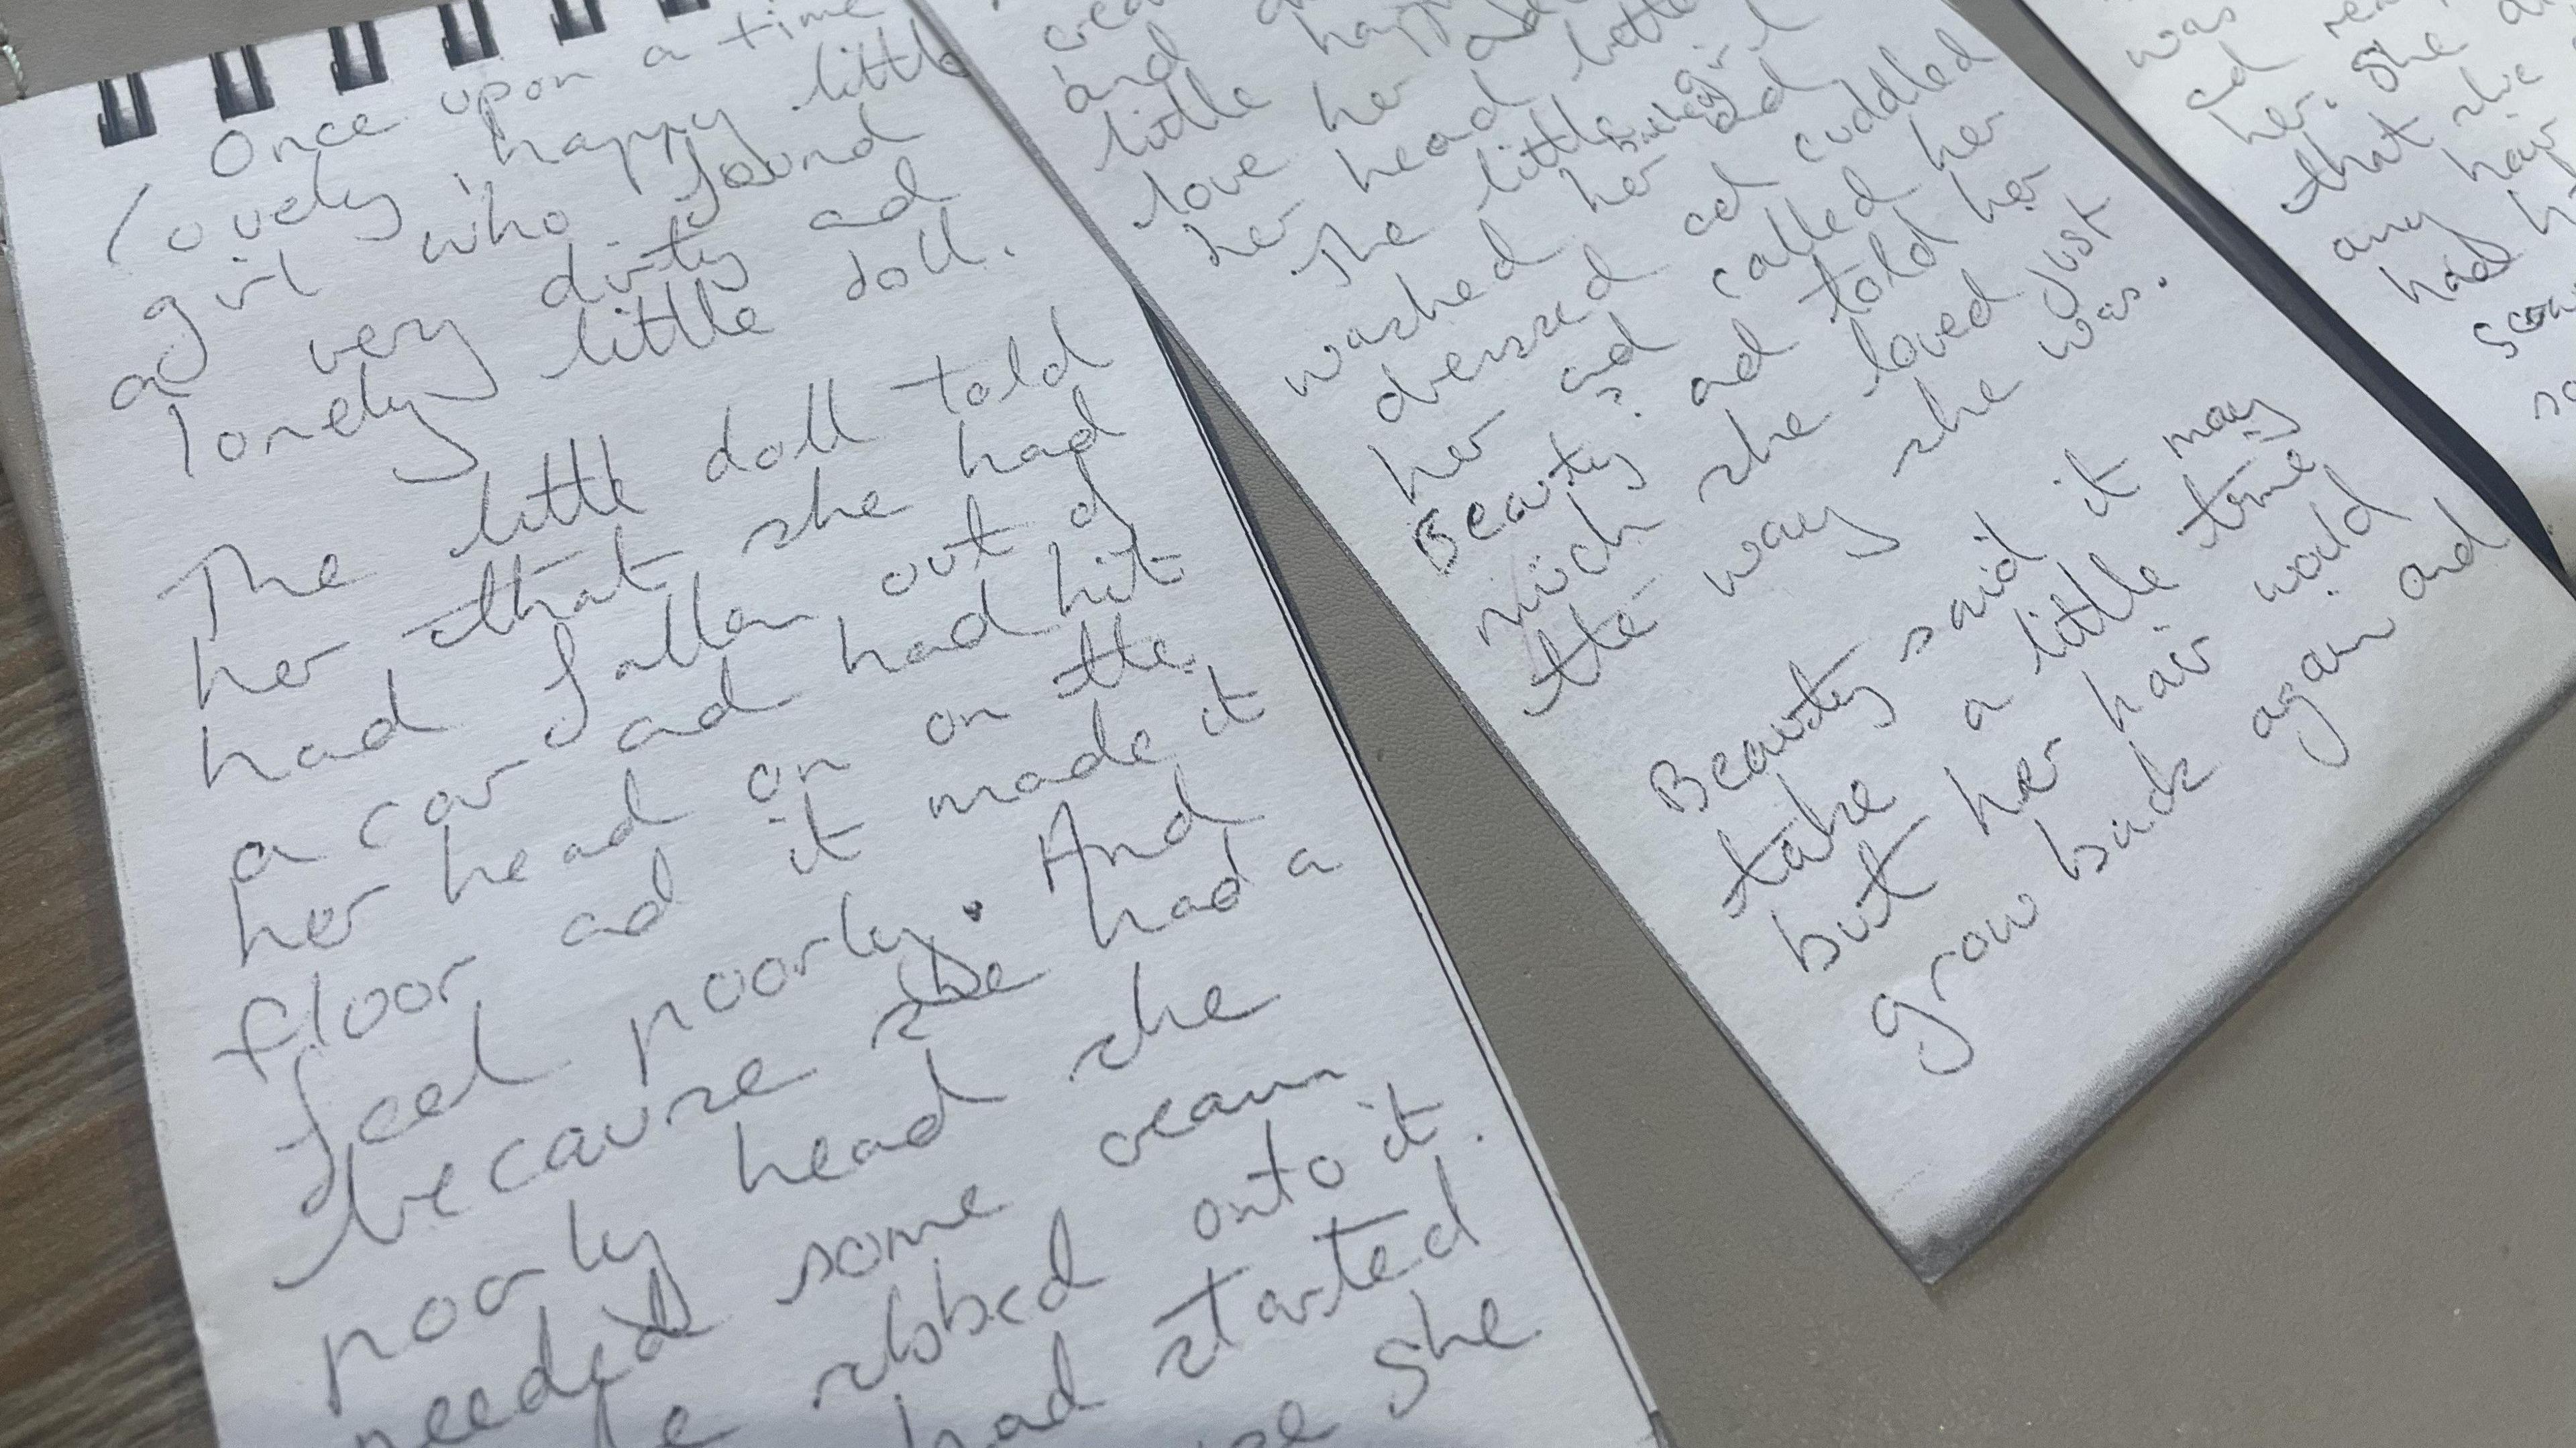 Once upon a time
lovely, happy little
girl who found
a very dirty ad
lonely little doll.
The little doll told
her that she had
had fallen out of
a car ad had hit
her head on on the
floor ad it made it
feel poorly. And
because she had a
poorly head she
needed some cream
robbed onto it.
had started
she
and happy
little
love her
her head little
The little girl
washed her ad
dressed ad cuddled
her ad called her
Beauty. ad told her
much she loved just
the way she was.
Beauty said it may
take a little time
but her hair wold
grow back again and
was
ad
her. She
that she
any hair
had